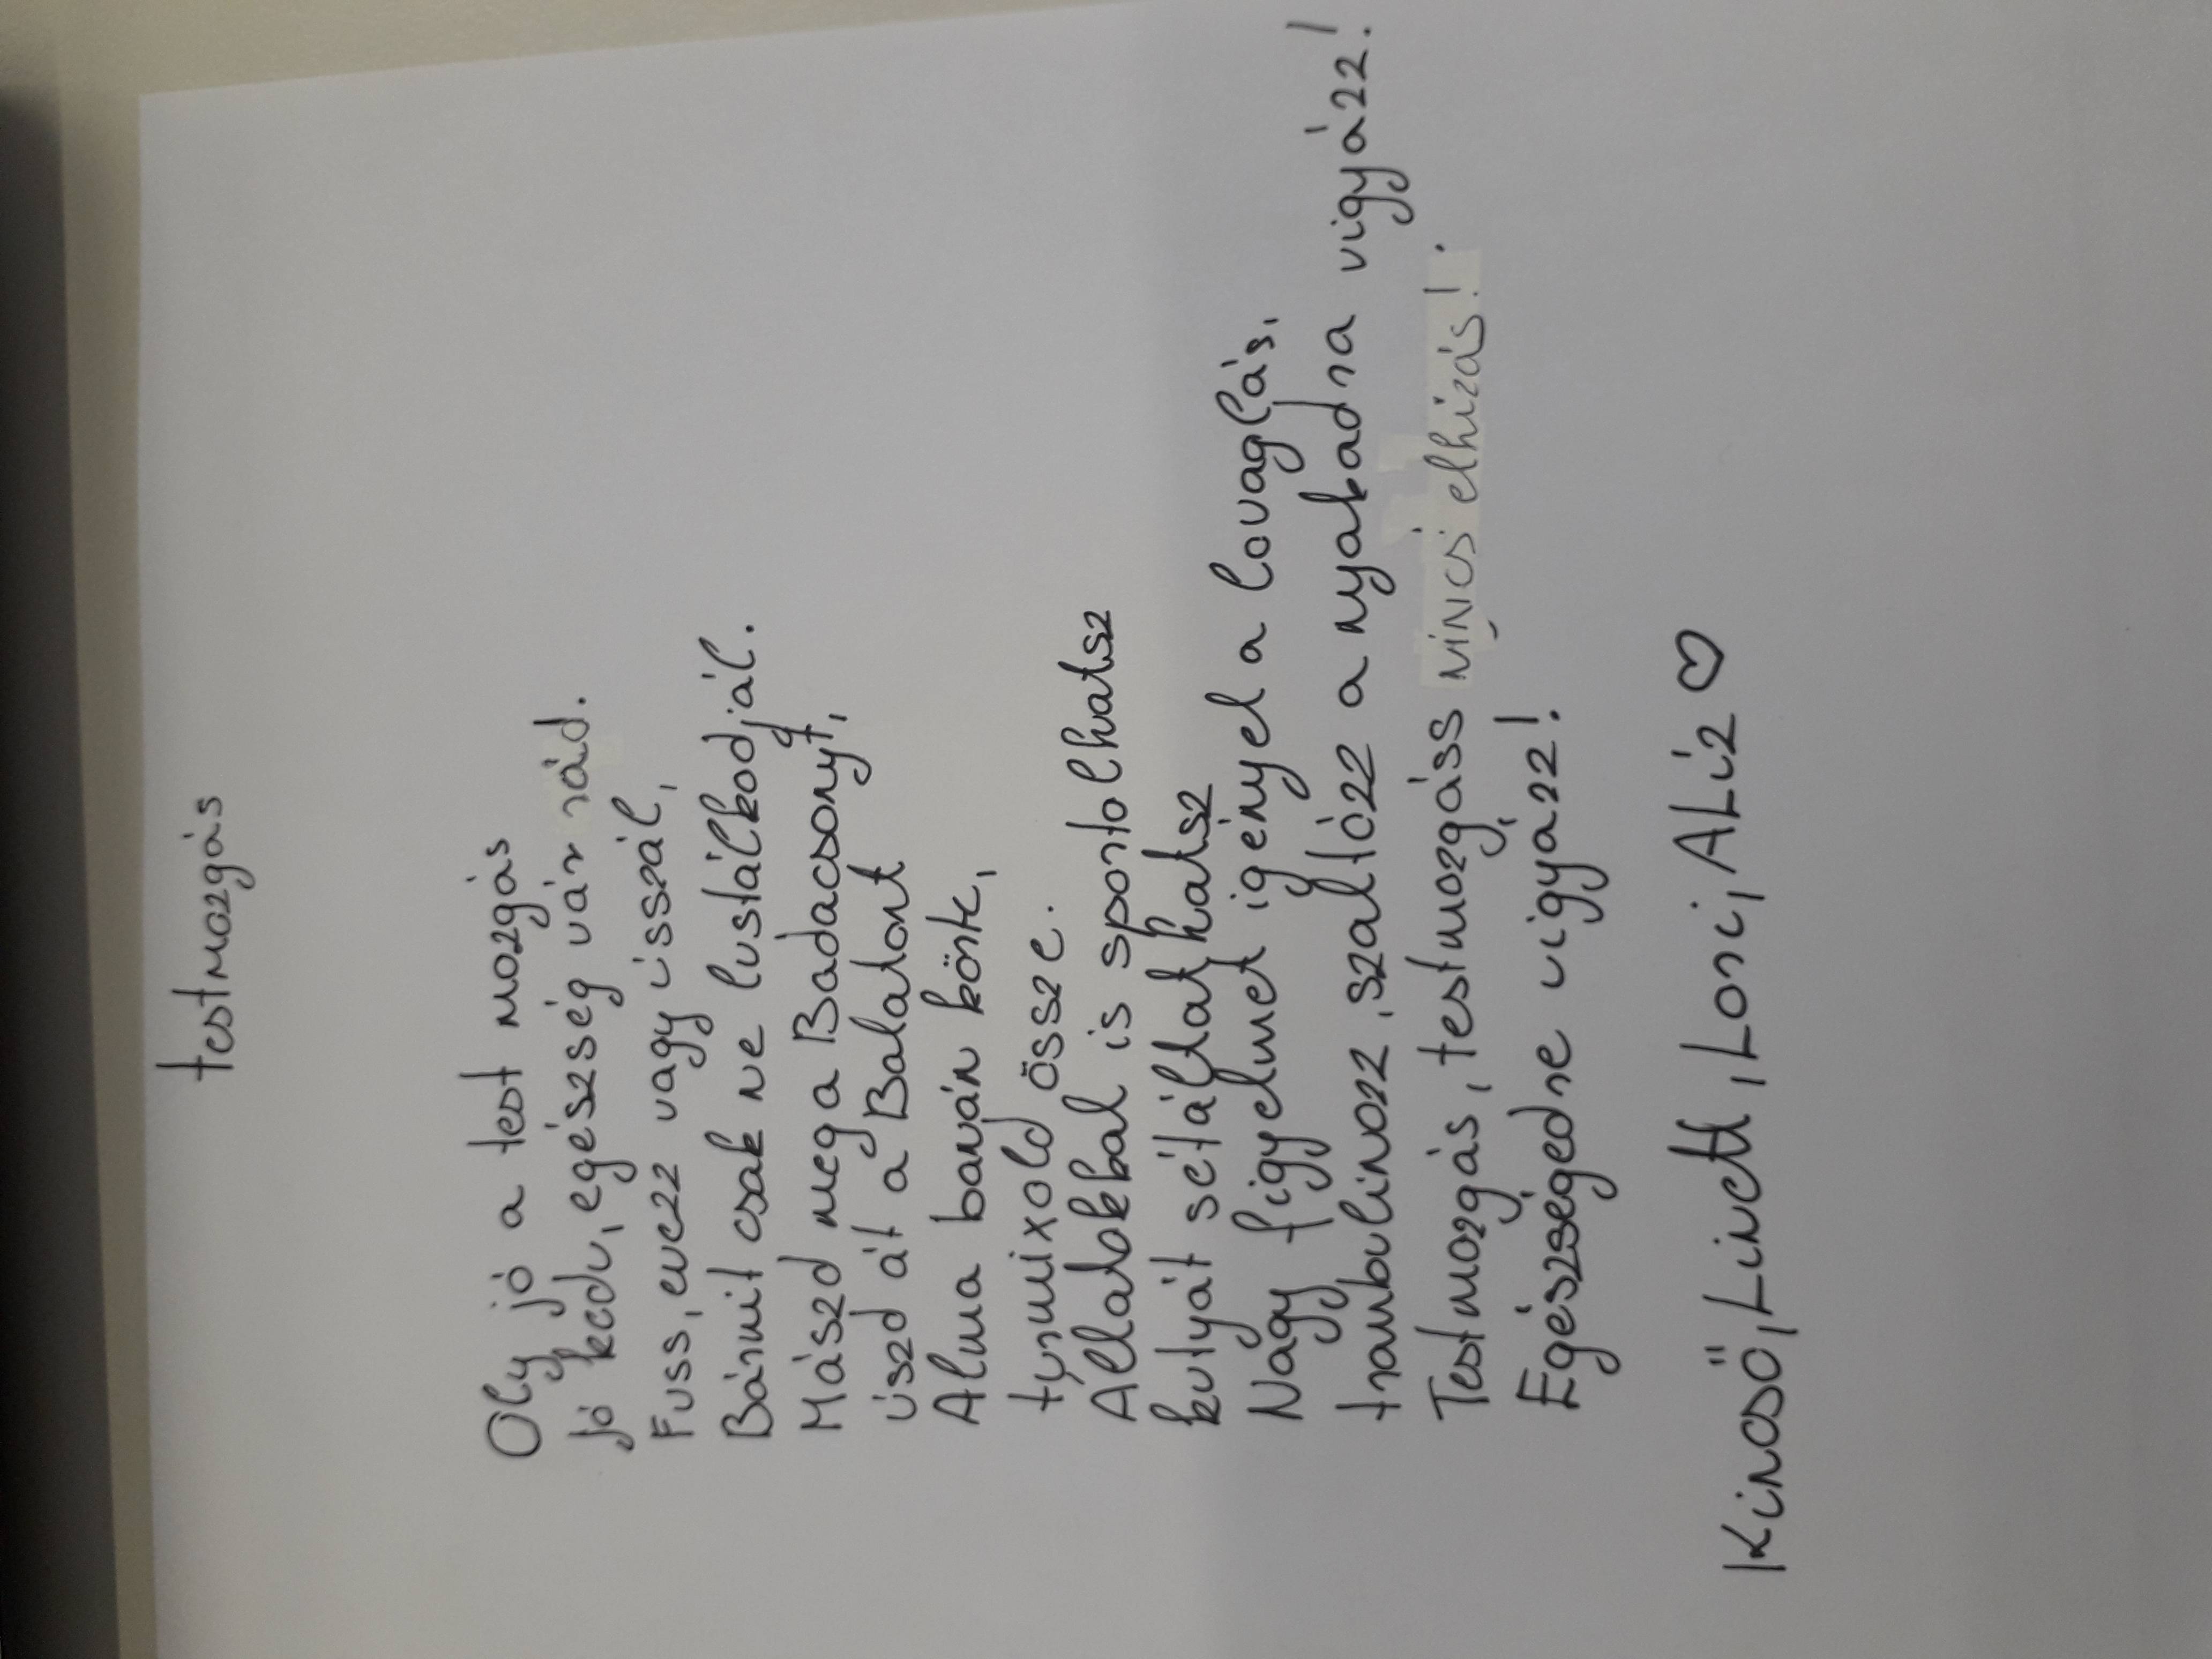 testmozgás
Oly jó a test mozgás
jó kedv, egészség vár rád.
Fuss, evezz vagy ússzál,
Bármit csak ne lustálkodjál.
Mászd meg a Badacsonyt,
úszd át a Balatont
Alma barván körte,
turmixold össze.
Állatokkal is sportolhatsz
kutyát sétáltathatsz
Nagy figyelmet igényel a lovaglás,
trambulinozz, szaltózz a nyakadra vigyázz!
Testmozgás, testmozgáss nincs elhízás!
Egészségedre vigyázz!
Kincső, Linett, Lori, ALíz ♡